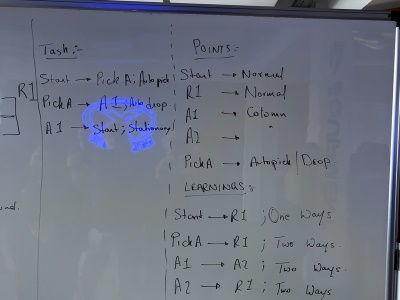 Task:-
Start → Pick A; Autopick
R1
Pick A → A1; Autodrop
A1 → Start; Stationary
und.
POINTS:-
Start → Normal
R1 → Normal
A1 → Column
A2 →
Pick A → Autopick/Drop
LEARNINGS:
Start → R1 ; One Ways
Pick A → R1 ; Two Ways.
A1 → A2 ; Two Ways.
A2 → R1 ; Two Ways